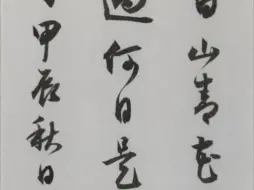 白山青花
過何日是
甲辰秋日